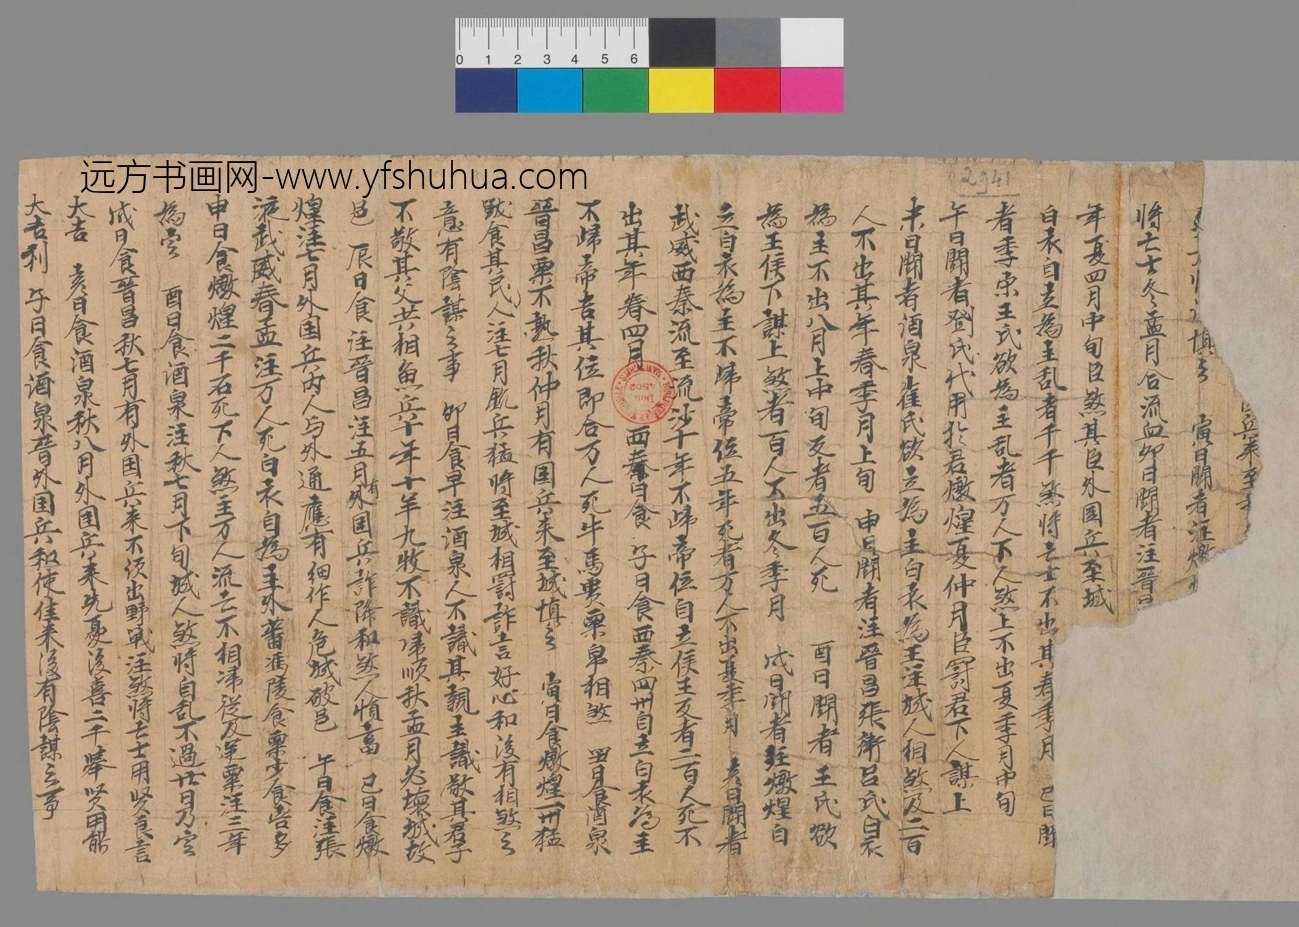 远方书画网-www.yfshuhua.com
0 1 2 3 4 5 6
2941
兵来至
慎之 寅日鬪者注燉
将亡士冬孟月合流血卯日鬪者注晉
年夏四月中旬臣煞其臣外国兵至城
白衣自立為主乱者千千煞将亡士不出其者季月 巳日鬪
者季宋王氏欲為主乱者万人下人煞上不出夏季月中旬
午日鬪者登氏代用於君燉煌夏仲月臣罸君下人謀上
未日鬪者酒泉雀氏欲立為主白衣為王注城人相煞及二百
人不出其年春季月上旬 申日鬪者注晉昌張衛吕氏白衣
為主不出八月上中旬友者五百人死 酉日鬪者王氏欲
為王侯下謀上煞者百人不出冬季月 戌日鬪者注燉煌自
立白衣為主不㷌帝位五年死者万人不出夏季月 亥日鬪者
武威西秦流至流沙十年不㷌帝位自立侯王友者二百人死不
出其年春四月 西秦日食 子日食西秦四州自立白衣為主
不歸帝吉其位即合万人死牛馬粟帛相煞 丑日食酒泉
晉昌粟不熟秋仲月有国兵来至城慎之 寅日食燉煌一州猛
戰食其民人注七月飢兵猛将至城相罸詐言好心和後有相煞之
意有陰謀之事 卯日食早注酒泉人不識其親主識敬其君子
不敬其父共相魚兵十年十年九牧不識㷌順秋孟月必壊城故
邑 辰日食注晉昌注五月有外国兵詐降和煞人慎審 巳日食燉
煌注七月外国兵内人与外通應有细作人危城破邑 午日食注張
液武威春孟注万人死白衣自為王外蕃侵陵食粟少食苦多
申日食燉煌二千石死下人煞主万人流亡不相㷌從及運粟注三年
為灾 酉日食酒泉注秋七月下旬城人煞将自乱不過廿日乃灾
戌日食晉昌秋七月有外国兵来不須出野戰注煞将亡士用贤良言
大吉 亥日食酒泉秋八月外国兵来先憂後喜二千举贤用能
大吉利 子日食酒泉晉外国兵和使佳来後有陰謀之事